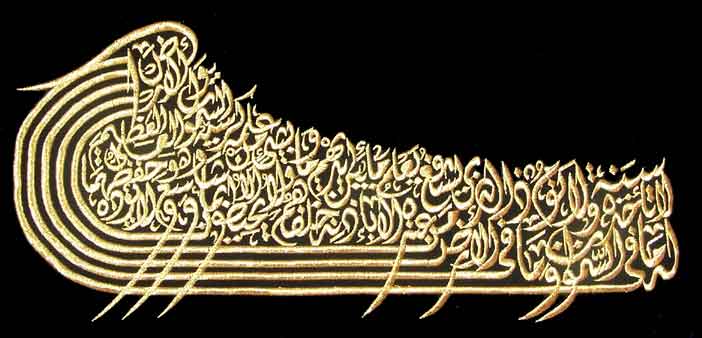 لا تأخذه سنة ولا نوم
له ما في السموات وما في الأرض
من ذا الذي يشفع عنده إلا بإذنه
يعلم ما بين أيديهم وما خلفهم
ولا يحيطون بشيء من علمه إلا بما شاء
وسع كرسيه السموات والأرض
ولا يؤوده حفظهما وهو العلي العظيم